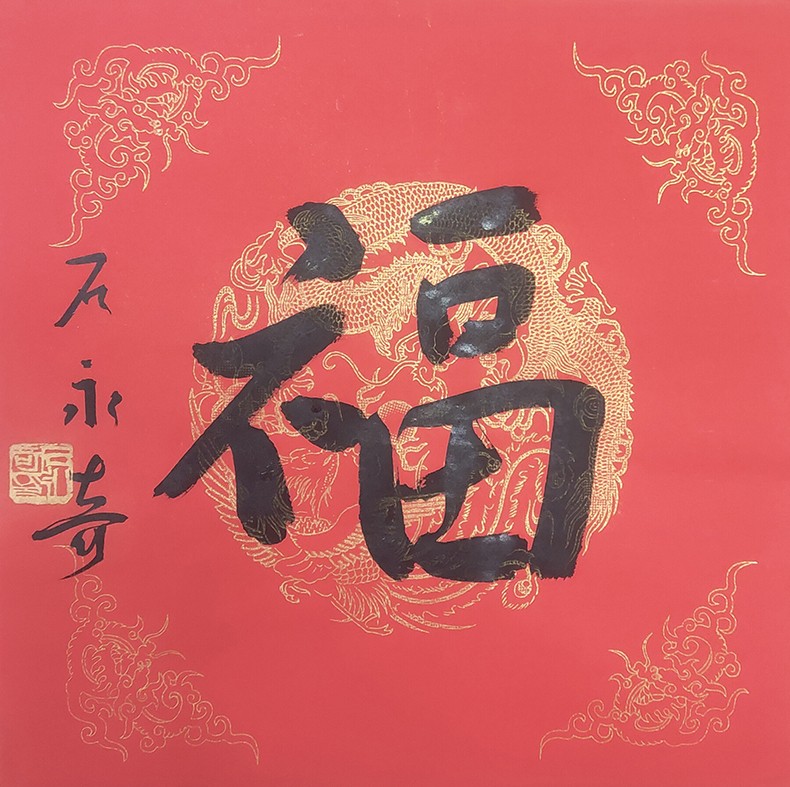 福
石永奇